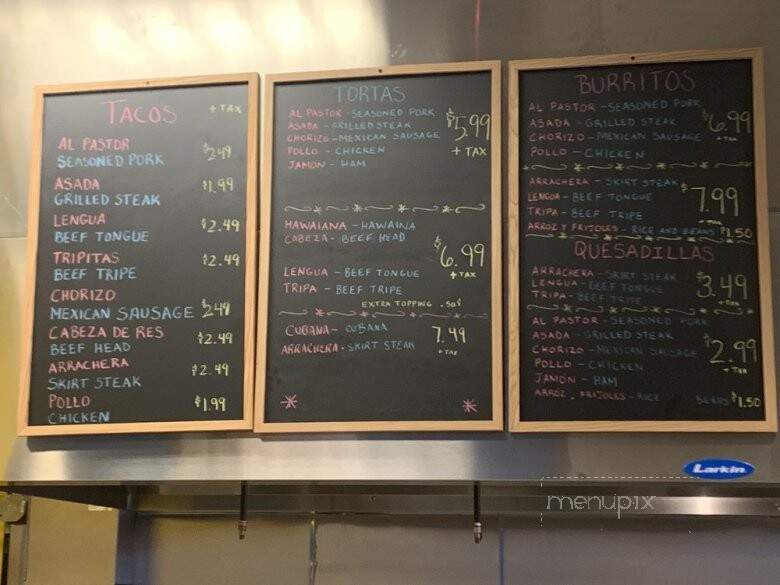 TACOS + TAX
AL PASTOR
SEASONED PORK $2.49
ASADA $1.99
GRILLED STEAK
LENGUA $2.49
BEEF TONGUE
TRIPITAS $2.49
BEEF TRIPE
CHORIZO
MEXICAN SAUSAGE 2.49
CABEZA DE RES $2.49
BEEF HEAD
ARRACHERA $2.49
SKIRT STEAK
POLLO $1.99
CHICKEN
TORTAS
AL PASTOR - SEASONED PORK
ASADA - GRILLED STEAK $5.99
CHORIZO - MEXICAN SAUSAGE
POLLO - CHICKEN + TAX
JAMON - HAM
HAWAIANA - HAWAINA
CABEZA - BEEF HEAD $6.99
LENGUA - BEEF TONGUE + TAX
TRIPA - BEEF TRIPE
EXTRA TOPPING .50¢
CUBANA - CUBANA 7.49
ARRACHERA - SKIRT STEAK + TAX
BURRITOS
AL PASTOR - SEASONED PORK
ASADA - GRILLED STEAK $6.99
CHORIZO - MEXICAN SAUSAGE + TAX
POLLO - CHICKEN
ARRACHERA - SKIRT STEAK
LENGUA - BEEF TONGUE $7.99
TRIPA - BEEF TRIPE + TAX
ARROZ Y FRIJOLES - RICE AND BEANS $1.50
QUESADILLAS
ARRACHERA - SKIRT STEAK
LENGUA - BEEF TONGUE $3.49
TRIPA - BEEF TRIPE + TAX
AL PASTOR - SEASONED PORK
ASADA - GRILLED STEAK
CHORIZO - MEXICAN SAUSAGE $2.99
POLLO - CHICKEN + TAX
JAMON - HAM
ARROZ, FRIJOLES - RICE BEANS $1.50
Larkin
menupix